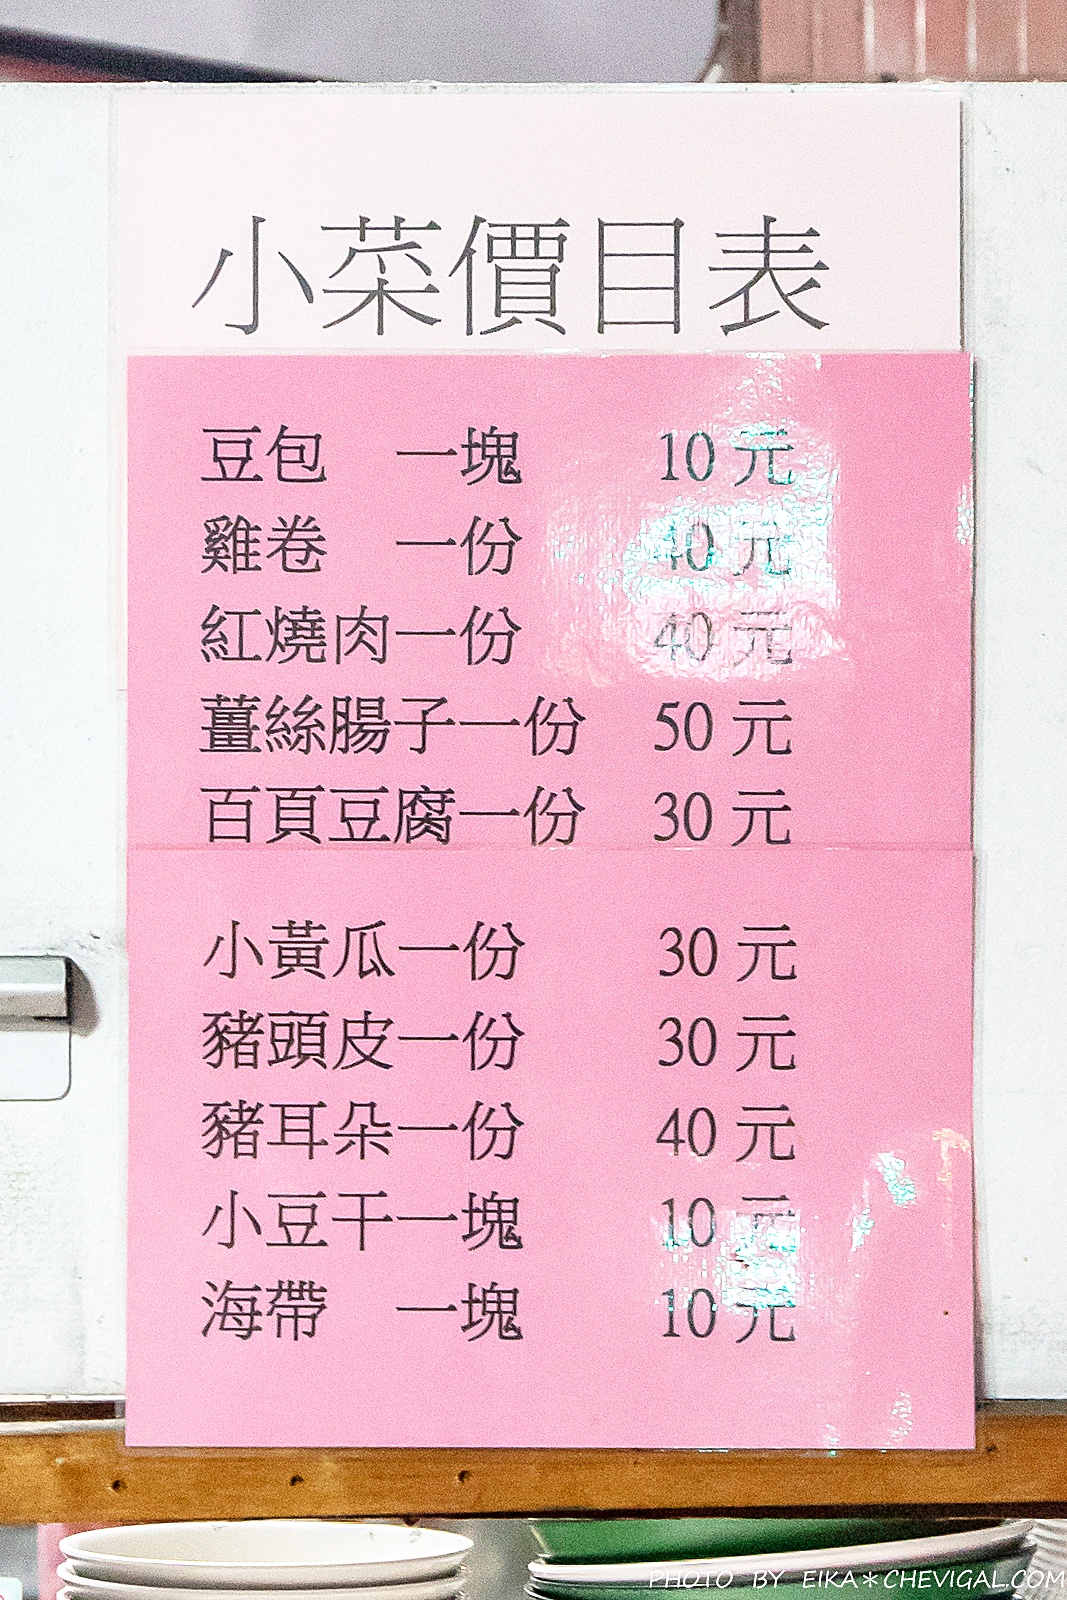 小菜價目表
豆包 一塊 10 元
雞卷 一份 40 元
紅燒肉一份 40 元
薑絲腸子一份 50 元
百頁豆腐一份 30 元
小黃瓜一份 30 元
豬頭皮一份 30 元
豬耳朵一份 40 元
小豆干一塊 10 元
海帶 一塊 10 元
PHOTO BY EIKA*CHEVIGAL.COM